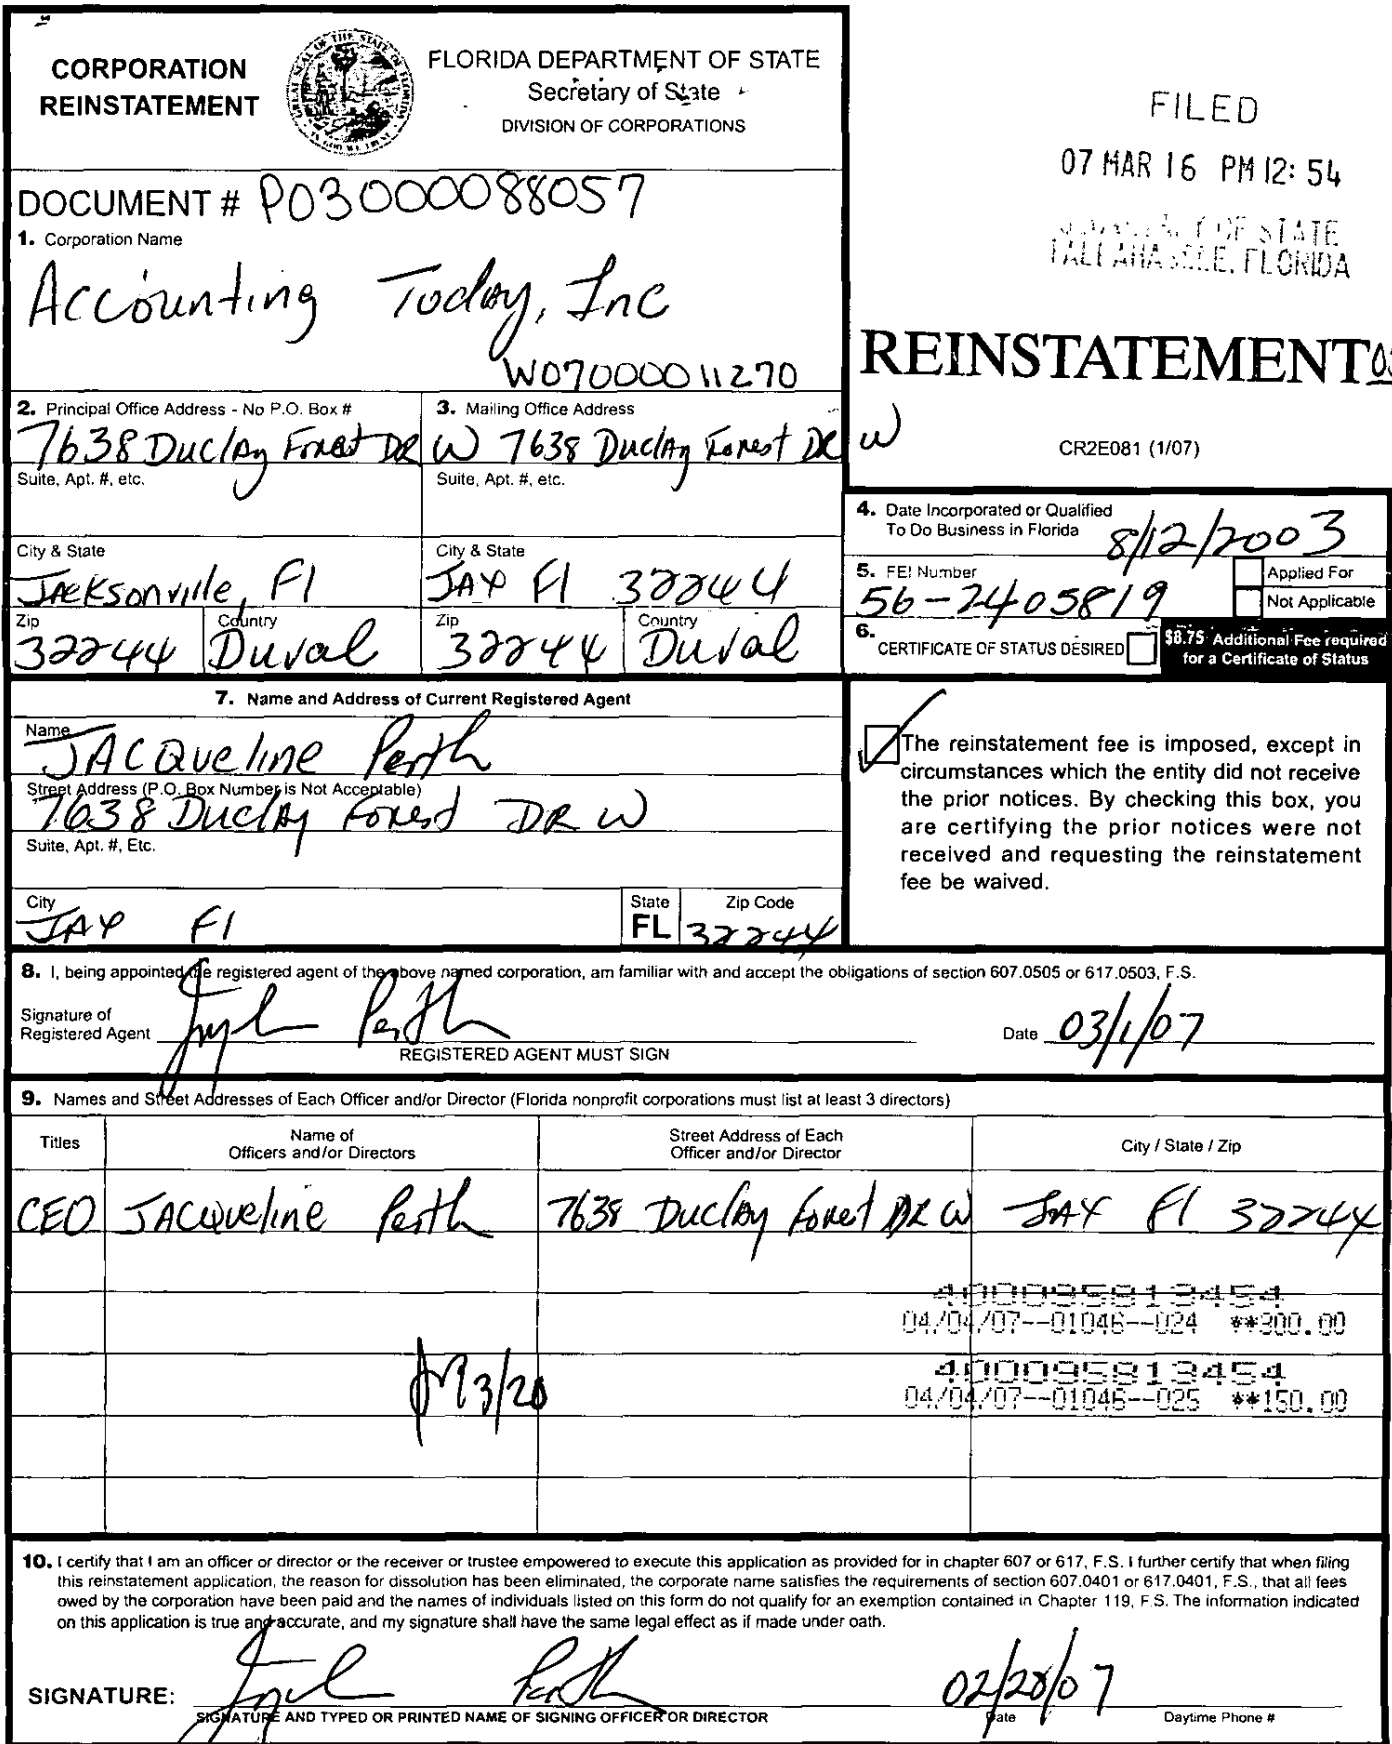 CORPORATION
REINSTATEMENT
FLORIDA DEPARTMENT OF STATE
Secretary of State
DIVISION OF CORPORATIONS
FILED
07 MAR 16 PM 12: 54
OF STATE
TALLAHASSEE, FLORIDA
DOCUMENT # P03000088057
1. Corporation Name
Accounting Today, Inc
W07000011270
REINSTATEMENT
CR2E081 (1/07)
2. Principal Office Address - No P.O. Box #
7638 Duclay Forest DR W
Suite, Apt. #, etc.
City & State
Jacksonville, Fl
Zip
32244
Country
Duval
3. Mailing Office Address
7638 Duclay Forest DR W
Suite, Apt. #, etc.
City & State
JAX Fl 32244
Zip
32244
Country
Duval
4. Date Incorporated or Qualified
To Do Business in Florida
8/12/2003
5. FEI Number
56-2405819
Applied For
Not Applicable
6. CERTIFICATE OF STATUS DESIRED
$8.75 Additional Fee required
for a Certificate of Status
7. Name and Address of Current Registered Agent
Name
JACQueline Perth
Street Address (P.O. Box Number is Not Acceptable)
7638 Duclay Forest DR W
Suite, Apt. #, Etc.
City
JAX Fl
State
FL
Zip Code
32244
The reinstatement fee is imposed, except in
circumstances which the entity did not receive
the prior notices. By checking this box, you
are certifying the prior notices were not
received and requesting the reinstatement
fee be waived.
8. I, being appointed the registered agent of the above named corporation, am familiar with and accept the obligations of section 607.0505 or 617.0503, F.S.
Signature of
Registered Agent
Perth
REGISTERED AGENT MUST SIGN
Date 03/1/07
9. Names and Street Addresses of Each Officer and/or Director (Florida nonprofit corporations must list at least 3 directors)
Titles
Name of
Officers and/or Directors
Street Address of Each
Officer and/or Director
City / State / Zip
CEO JACQueline Perth 7638 Duclay Forest DR W JAX Fl 32244
400095813454
04/04/07--01046--024 **300.00
400095813454
04/04/07--01046--025 **150.00
3/20
10. I certify that I am an officer or director or the receiver or trustee empowered to execute this application as provided for in chapter 607 or 617, F.S. I further certify that when filing
this reinstatement application, the reason for dissolution has been eliminated, the corporate name satisfies the requirements of section 607.0401 or 617.0401, F.S., that all fees
owed by the corporation have been paid and the names of individuals listed on this form do not qualify for an exemption contained in Chapter 119, F.S. The information indicated
on this application is true and accurate, and my signature shall have the same legal effect as if made under oath.
SIGNATURE:
Perth
02/28/07
SIGNATURE AND TYPED OR PRINTED NAME OF SIGNING OFFICER OR DIRECTOR
Date
Daytime Phone #